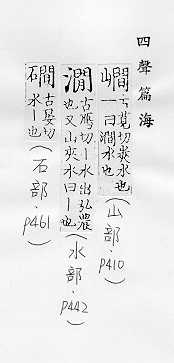 四聲篇海
古莧切夾水也
一曰澗水也
(山部.p410)
澗
古鴈切丨水出弘農
也又山夾水曰丨也
(水部.p442)
磵
古晏切
水丨也
(石部.p461)